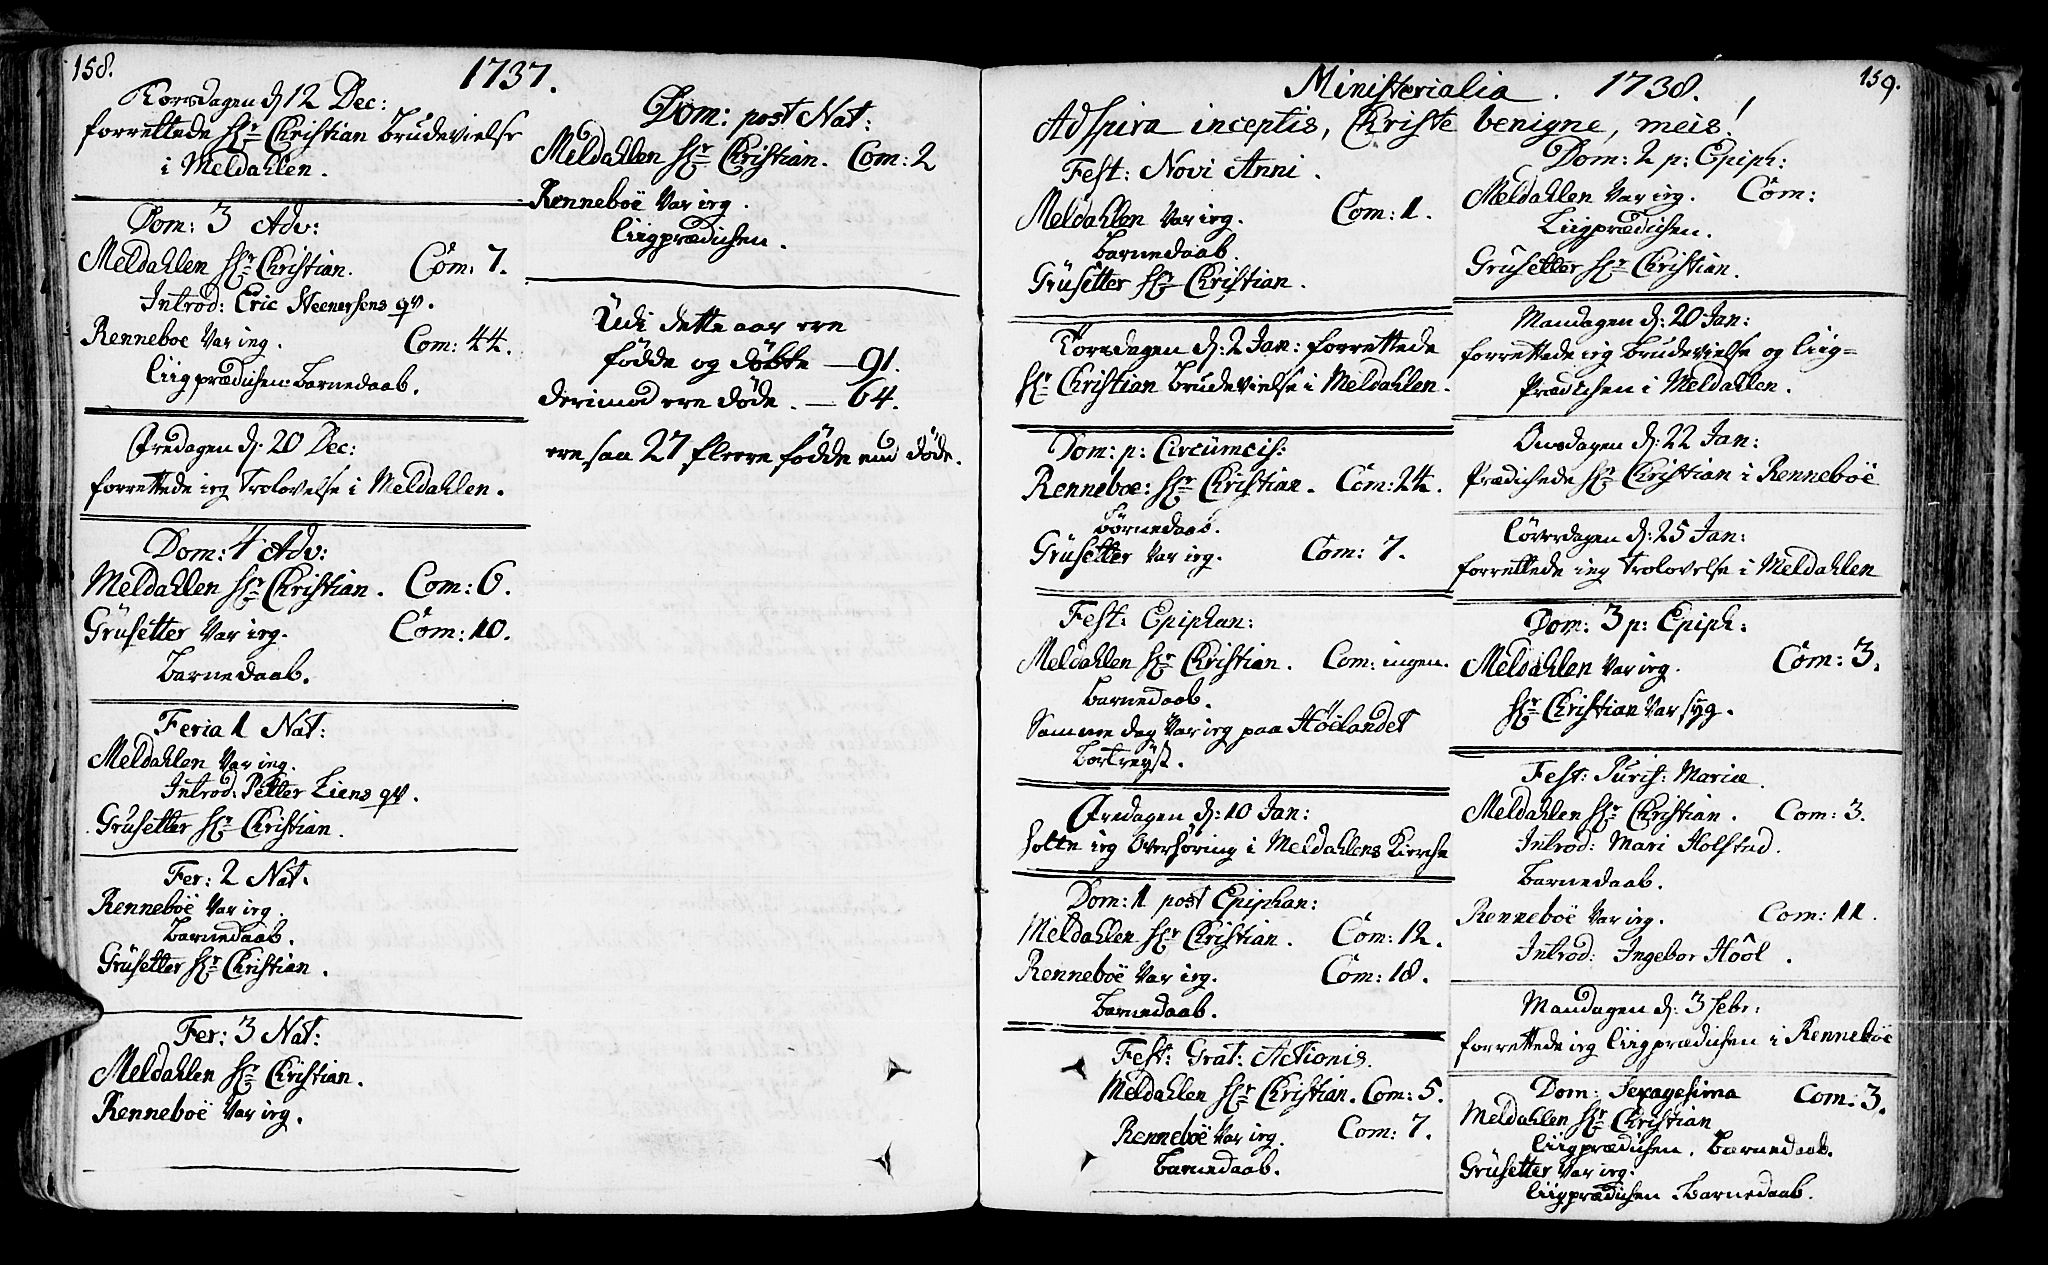 158.
1737.
Torsdagen d: 12 Dec:
forrettede Hr Christian Brudevielse
i Meldahlen.
Dom: 3 Adv:
Meldahlen Hr Christian. Com: 7.
Introd: Eric Steenersens qv.
Renneboe Var ieg. Com: 44.
Liigprædichen. Barnedaab.
Fredagen d: 20 Dec:
forrettede ieg Trolovelse i Meldahlen.
Dom: 4 Adv:
Meldahlen Hr Christian. Com: 6.
Grüsetter Var ieg. Com: 10.
Barnedaab.
Feria 1 Nat:
Meldahlen Var ieg.
Introd: Petter Liens qv.
Grüsetter Hr Christian.
Fer: 2 Nat.
Renneböe Var ieg.
Barnedaab.
Grüsetter Hr Christian.
Fer: 3 Nat:
Meldahlen Hr Christian.
Renneböe Var ieg.
Dom: post Nat:
Meldahlen Hr Christian. Com: 2
Renneböe Var ieg.
Liigprædichen.
Udi dette aar ere
fødde og døbte — 91.
derimod ere døde. — 64.
ere saa 27 fleere fødde end døde.
159.
Ministerialia. 1738.
Adspira inceptis, Christe benigne, meis!
Fest: Novi Anni.
Meldahlen Var ieg. Com: 1.
Barnedaab.
Grüsetter Hr Christian.
Torsdagen d: 2 Jan: forrettede
Hr Christian Brudevielse i Meldahlen.
Dom: p: Circümcis:
Renneboe: Hr Christian. Com: 24.
Børnedaab.
Grüsetter Var ieg. Com: 7.
Fest: Epiphan:
Meldahlen Hr Christian. Com: ingen.
Barnedaab.
Samme dag Var ieg paa Höelandet
bortreyst.
Fredagen d: 10 Jan:
holte ieg Overhøring i Meldahlens Kierche
Dom: 1 post Epiphan:
Meldahlen Hr Christian. Com: 12.
Renneböe Var ieg. Com: 18.
Barnedaab.
Fest: Grat: Actionis.
Meldahlen Hr Christian. Com: 5.
Renneböe Var ieg. Com: 7.
Barnedaab.
Dom: 2 p: Epiph:
Meldahlen Var ieg. Com:
Liigprædichen.
Grüsetter Hr Christian.
Mandagen d: 20 Jan:
forrettede ieg Brudevielse og Liig=
Prædichen i Meldahlen.
Onsdagen d: 22 Jan:
Prædichede Hr Christian i Renneböe
Löverdagen d: 25 Jan:
forrettede ieg Trolovelse i Meldahlen
Dom: 3 p: Epiph:
Meldahlen Var ieg. Com: 3.
Hr Christian Var syg.
Fest: Purif: Mariæ.
Meldahlen Hr Christian. Com: 3.
Introd: Mari Holstad.
Barnedaab.
Renneböe Var ieg. Com: 11.
Introd: Ingebor Hool.
Mandagen d: 3 Febr:
forrettede ieg Liigprædichen i Renneböe
Dom: Sexagesima Com: 3.
Meldahlen Hr Christian
Liigprædichen. Barnedaab.
Grüsetter Var ieg.
Liigprædichen Barnedaab.